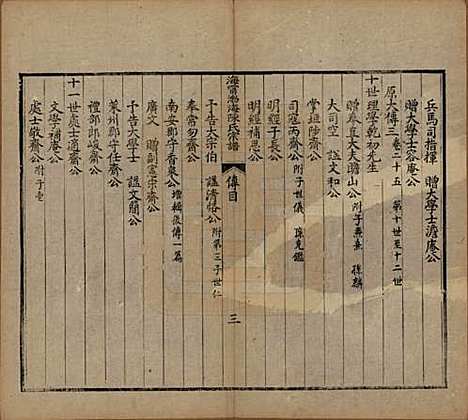 兵馬司指揮　贈大學士澹庵公
贈大學士容庵公
原大傳三　卷二十五　第十世至十二世
十世理學乾初先生
贈奉直大夫贍山公　附子燕燾　孫麟
大司空　諡文和公
掌垣陟齋公
司寇丙齋公　附子世儀　孫克鑑
明經子長公
明經補思公
海甯渤海陳氏宗譜
傳目
三
予告大宗伯　諡清恪公　附第三子世仁
奉常勿齋公
南安郡守香泉公　增輯後傳一篇
廣文　贈副憲宋齋公
予告大學士　諡文簡公
萊州郡守任齋公
禮部郎峻齋公
十一世處士適齋公
文學補庵公
處士敬齋公　附子